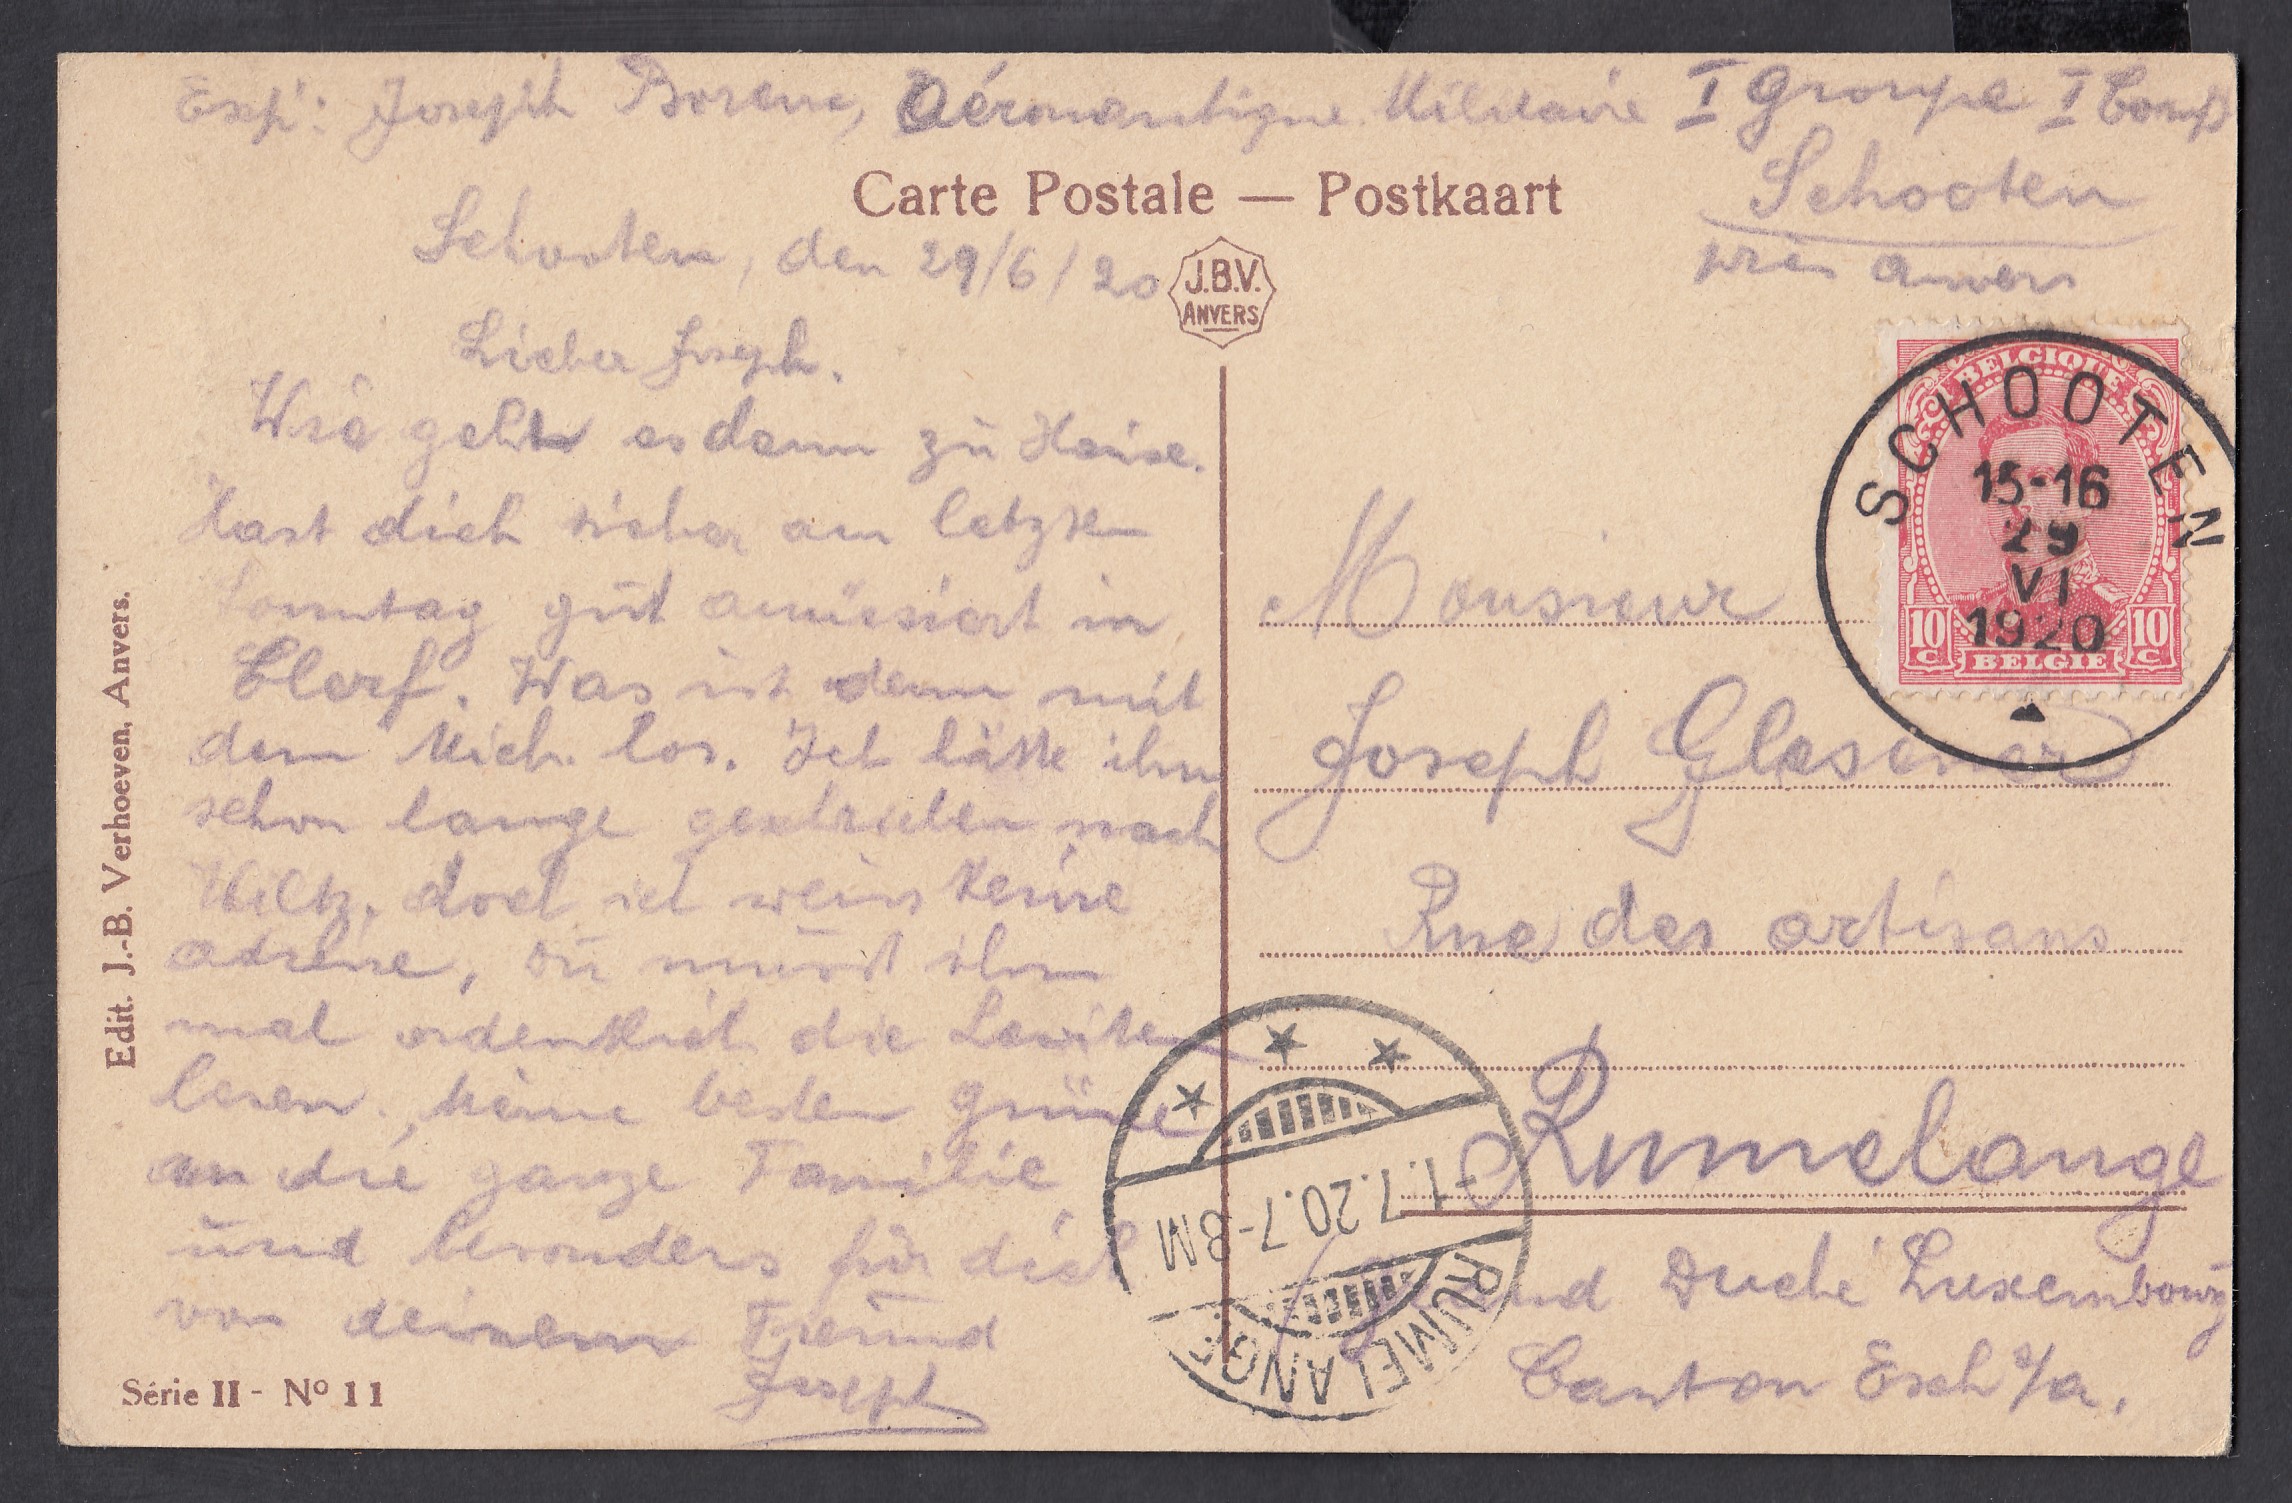 Exp: Joseph Borens, Aéronautique Militaire I Groupe I Comp
Schooten
près Anvers
Carte Postale — Postkaart
J.B.V.
ANVERS
Schooten, den 29/6/20
Lieber Joseph.
Wie geht es denn zu Hause.
Hast dich sicher am letzten
Sonntag gut amüsiert in
Clerf. Was ist denn mit
dem Mich. los. Ich hätte ihm
schon lange geschrieben nach
Wiltz, doch ich weiss keine
adresse, du musst ihm
mal ordentlich die Leviten
lesen. Meine besten Grüsse
an die ganze Familie
und besonders für dich
von deinem Freund
Joseph
Edit. J.-B. Verhoeven, Anvers.
Série II - No 11
BELGIQUE
10 C
BELGIE
10 C
SCHOOTEN
15-16
29
VI
1920
Monsieur
Joseph Glesener
Rue des artisans
Rumelange
Grand Duché Luxembourg
Canton Esch s/a.
-1.7.20.7-8M
RUMELANGE